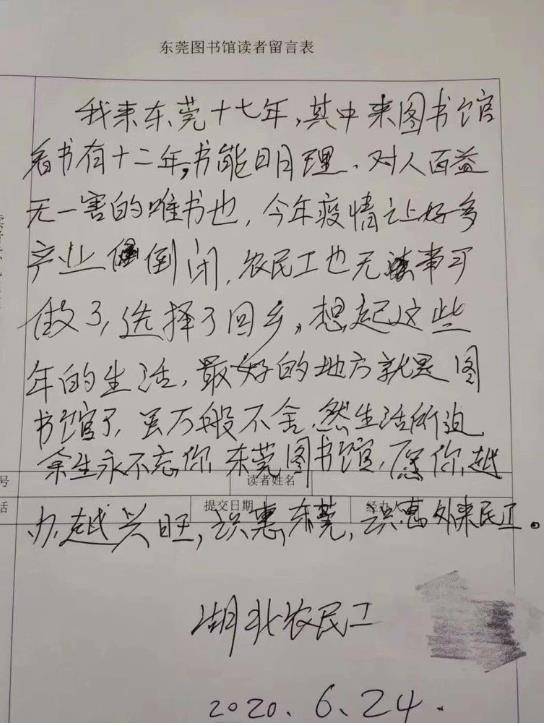 东莞图书馆读者留言表
我来东莞十七年,其中来图书馆
看书有十二年,书能明理,对人百益
无一害的唯书也,今年疫情让好多
产业倒闭,农民工也无事可
做了,选择了回乡,想起这些
年的生活,最好的地方就是图
书馆了,虽万般不舍,然生活所迫
余生永不忘你,东莞图书馆,愿你越
读者姓名
办越兴旺,识惠东莞,识惠外来民工。
提交日期
湖北农民工
2020.6.24.